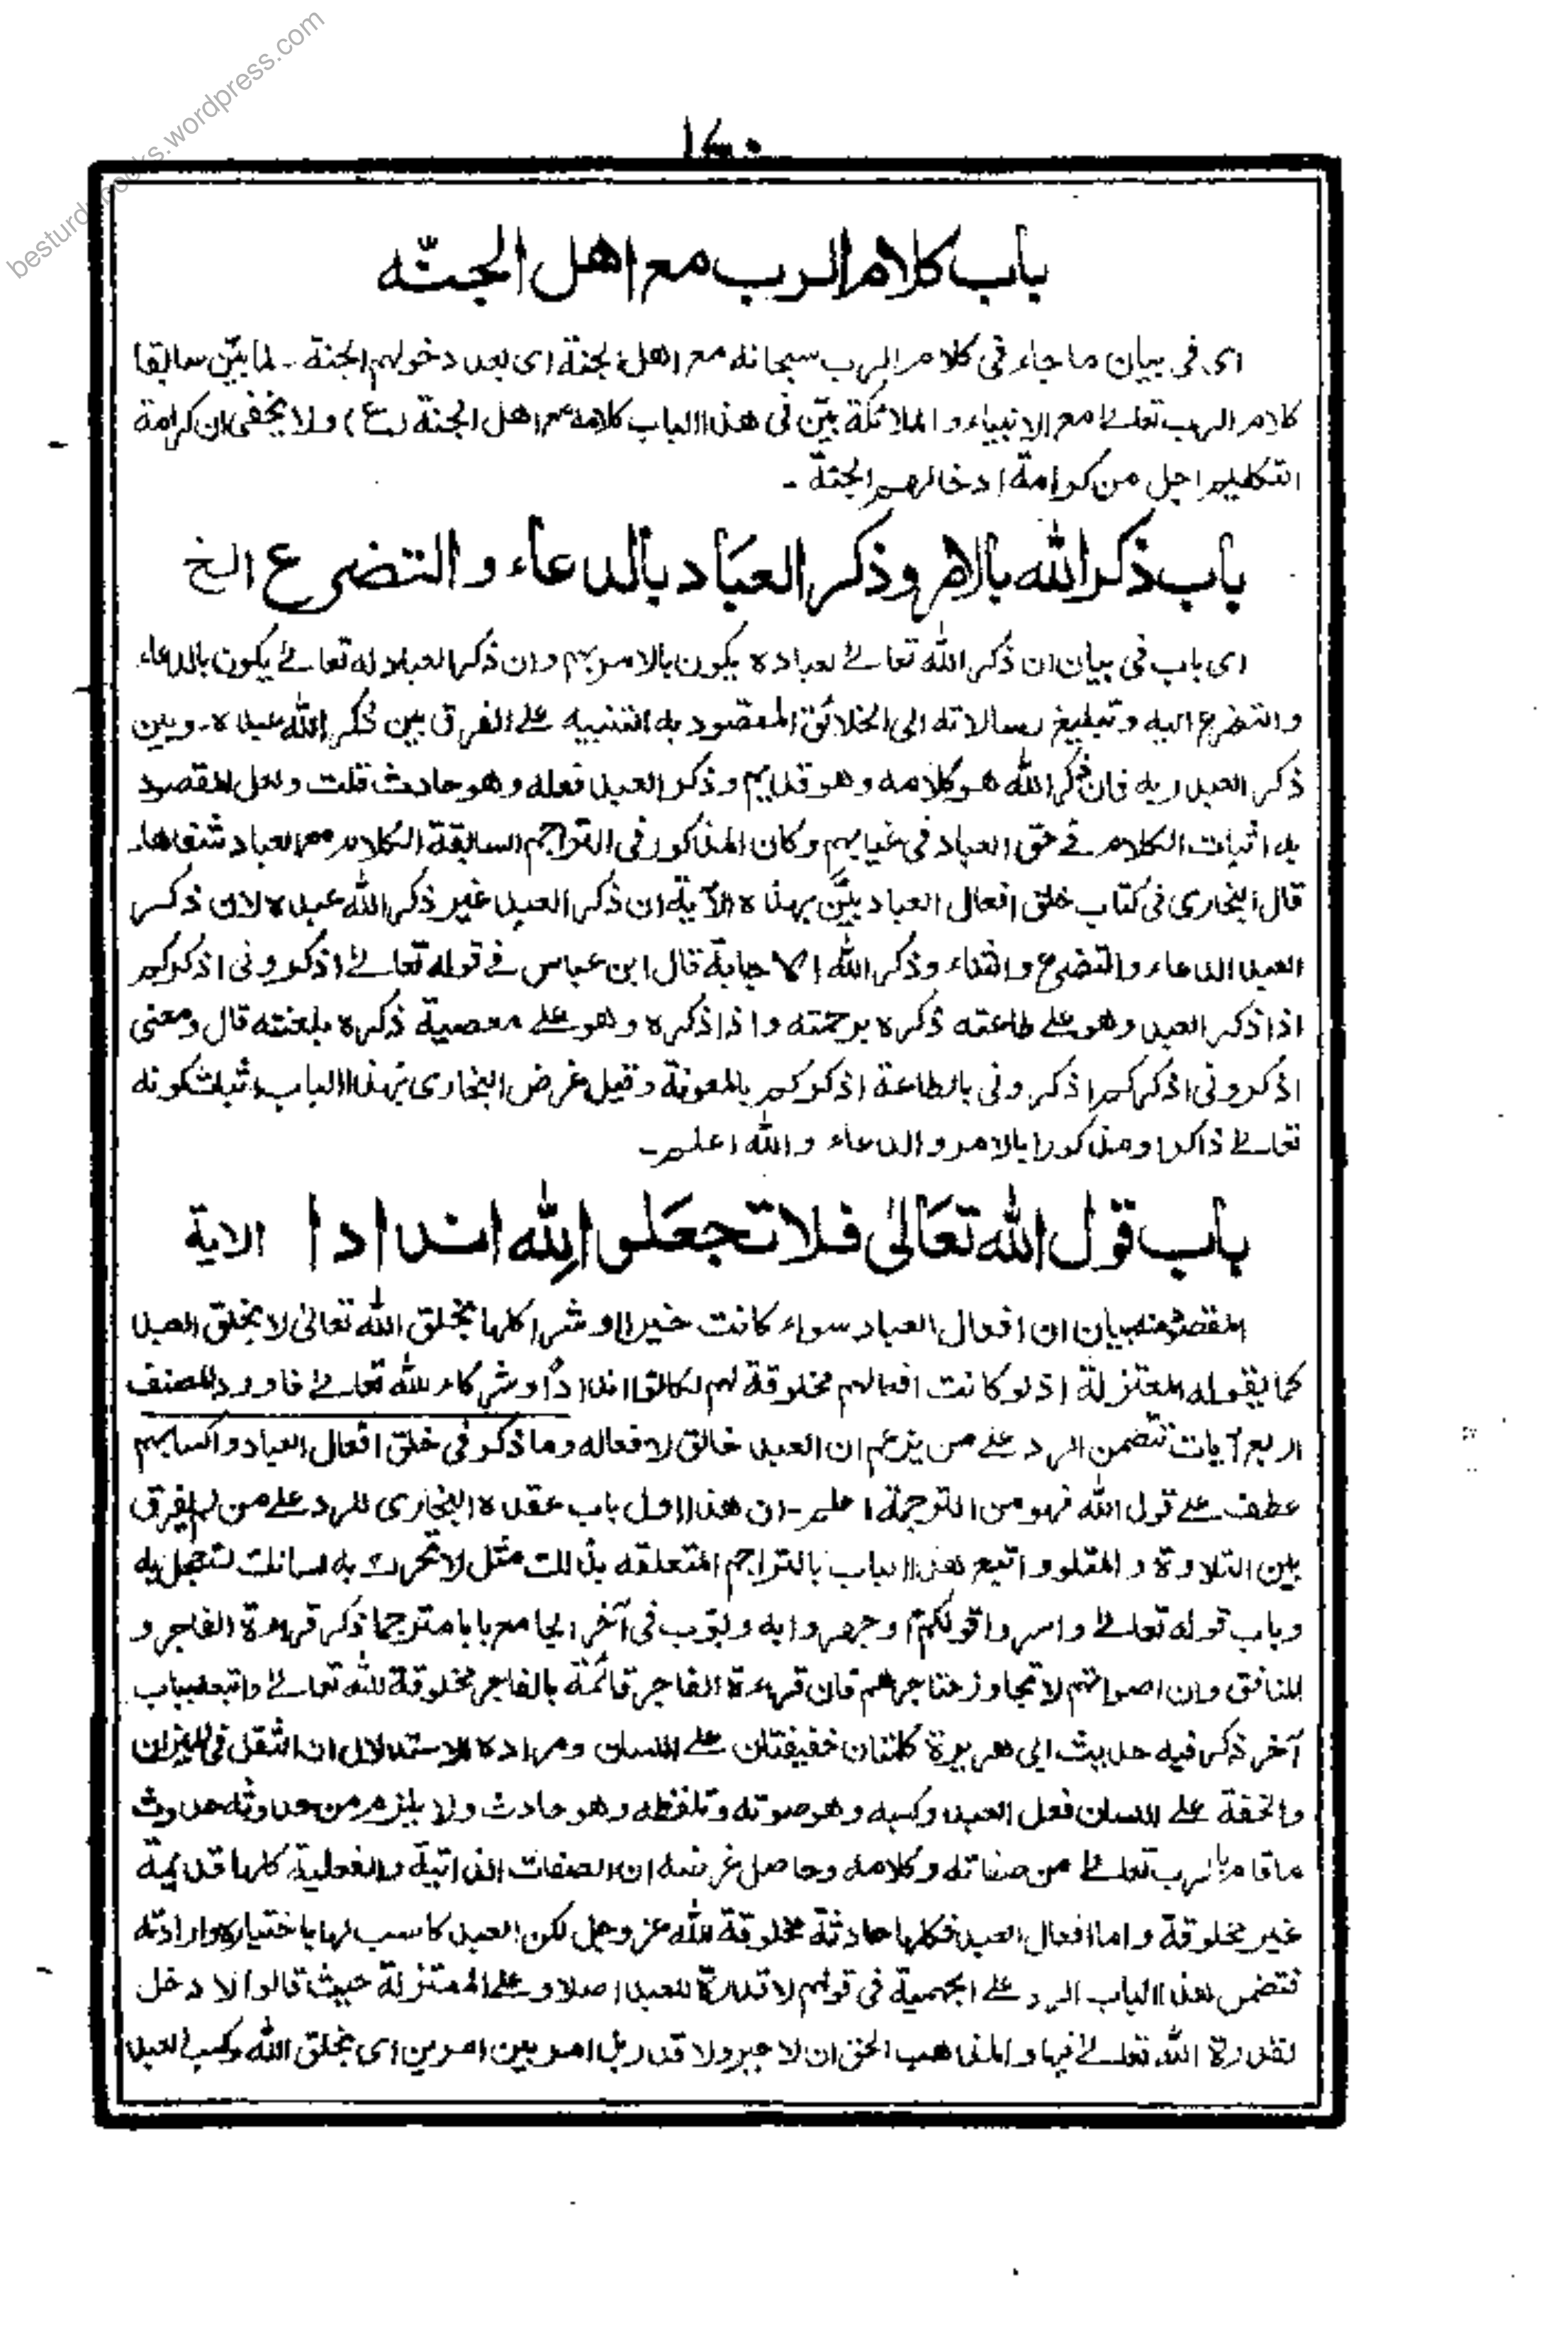 besturdubooks.wordpress.com
باب كلام الرب مع اهل الجنّه
اى فى بيان ما جاء فى كلام الرب سبحانه مع اهل الجنة اى بعد دخولهم الجنة ـ لما بيّن سابقا
كلام الرب تعالے مع الانبياء و الملائكة بيّن فى هذا الباب كلامه مع اهل الجنة (ع) ولا يخفى ان كرامة
التكليم اجل من كرامة ادخالهم الجنة ـ
باب ذكر الله بالامر وذكر العبَاد بالدعاء و التضرع الخ
اى باب فى بيان ان ذكر الله تعالے لعباده يكون بالامر بهم وان ذكر العباد له تعالے يكون بالدعاء
والتضرع اليه وتبليغ رسالاته الى الخلائق المقصود به التنبيه على الفرق بين ذكر الله عبده ـ وبين
ذكر العبد ربه فان ذكر الله هو كلامه وهو قديم وذكر العبد فعله وهو حادث قلت ولعل المقصود
به اثبات الكلام فے حق العباد فى غيابهم وكان المذكور فى التراجم السابقة الكلام مع العباد شفاها۔
قال البخارى فى كتاب خلق افعال العباد بيّن بهذه الآية ان ذكر العبد غير ذكر الله عبده لان ذكر
العبد الدعاء والتضرع والثناء وذكر الله الاجابة قال ابن عباس فے قوله تعالے اذكرونى اذكركم
اذا ذكر العبد وهو على طاعته ذكره برحمته واذا ذكره وهو على معصية ذكره بلعنته قال ومعنى
اذكرونى اذكركم اذكرونى بالطاعة اذكركم بالمعونة وقيل غرض البخارى بهذا الباب اثبات كونه
تعالے ذاكرا ومذكورا بالامر والدعاء والله اعلم ـ
باب قول الله تعَالىٰ فلا تجعَلوا لِلّٰه اندادا الاية
المقصود منه بيان ان افعال العباد سواء كانت خيرا او شرا كلها بخلق الله تعالىٰ لا بخلق العبد
كما يقوله المعتزلة اذ لو كانت افعالهم مخلوقة لهم لكانوا اندادًا وشركاء لله تعالے فاورد المصنف
اربع آيات تتضمن الرد على من يزعم ان العبد خالق لافعاله وما ذكر فى خلق افعال العباد واكسابهم
عطف على قول الله فهو من الترجمة اعلم ـ ان هذا اول باب عقده البخارى للرد على من لم يفرق
بين التلاوة والمتلو واتبع هذا الباب بالتراجم المتعلقه بذلك مثل لا تحرك به لسانك لتعجل به
وباب قوله تعالے واسروا قولكم او جهروا به وبوّب فى آخر الجامع بابا مترجما ذكر قراءة الفاجر و
المنافق وان اصواتهم لا تجاوز حناجرهم فان قراءة الفاجر قائمة بالفاجر مخلوقة لله تعالے واتبعه بباب
آخر ذكر فيه حديث ابى هريرة كلمتان خفيفتان على اللسان ومراده الاستدلال ان الثقل فى الميزان
والخفة على اللسان فعل العبد وكسبه وهو صوته وتلفظه وهو حادث ولا يلزم من حدوثه حدوث
ما قام بالرب تعالے من صفاته وكلامه وحاصل غرضه ان الصفات الذاتية والفعلية كلها قديمة
غير مخلوقة واما افعال العبد فكلها حادثة مخلوقة لله عز وجل لكن العبد كاسب لها باختياره وارادته
فتضمن هذا الباب الرد على الجهمية فى قولهم لا قدرة للعبد اصلا وعلى المعتزلة حيث قالوا لا دخل
لقدرة الله تعالے فيها والمذهب الحق ان لا جبر ولا قدر بل امر بين امرين اى بخلق الله وكسب العبد